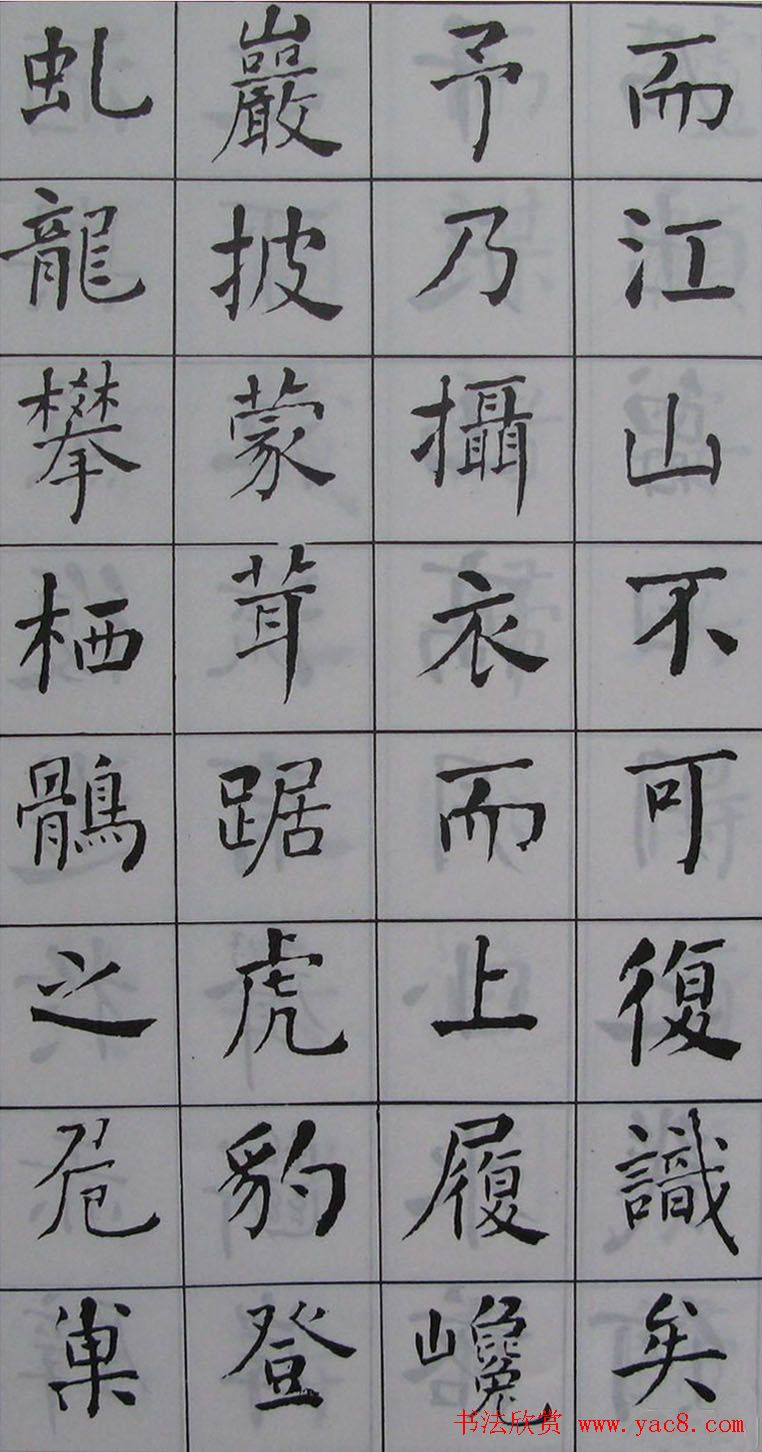 而江山不可復識矣
予乃攝衣而上履巉
巖披蒙茸踞虎豹登
虬龍攀栖鶻之危巢
书法欣赏 www.yac8.com